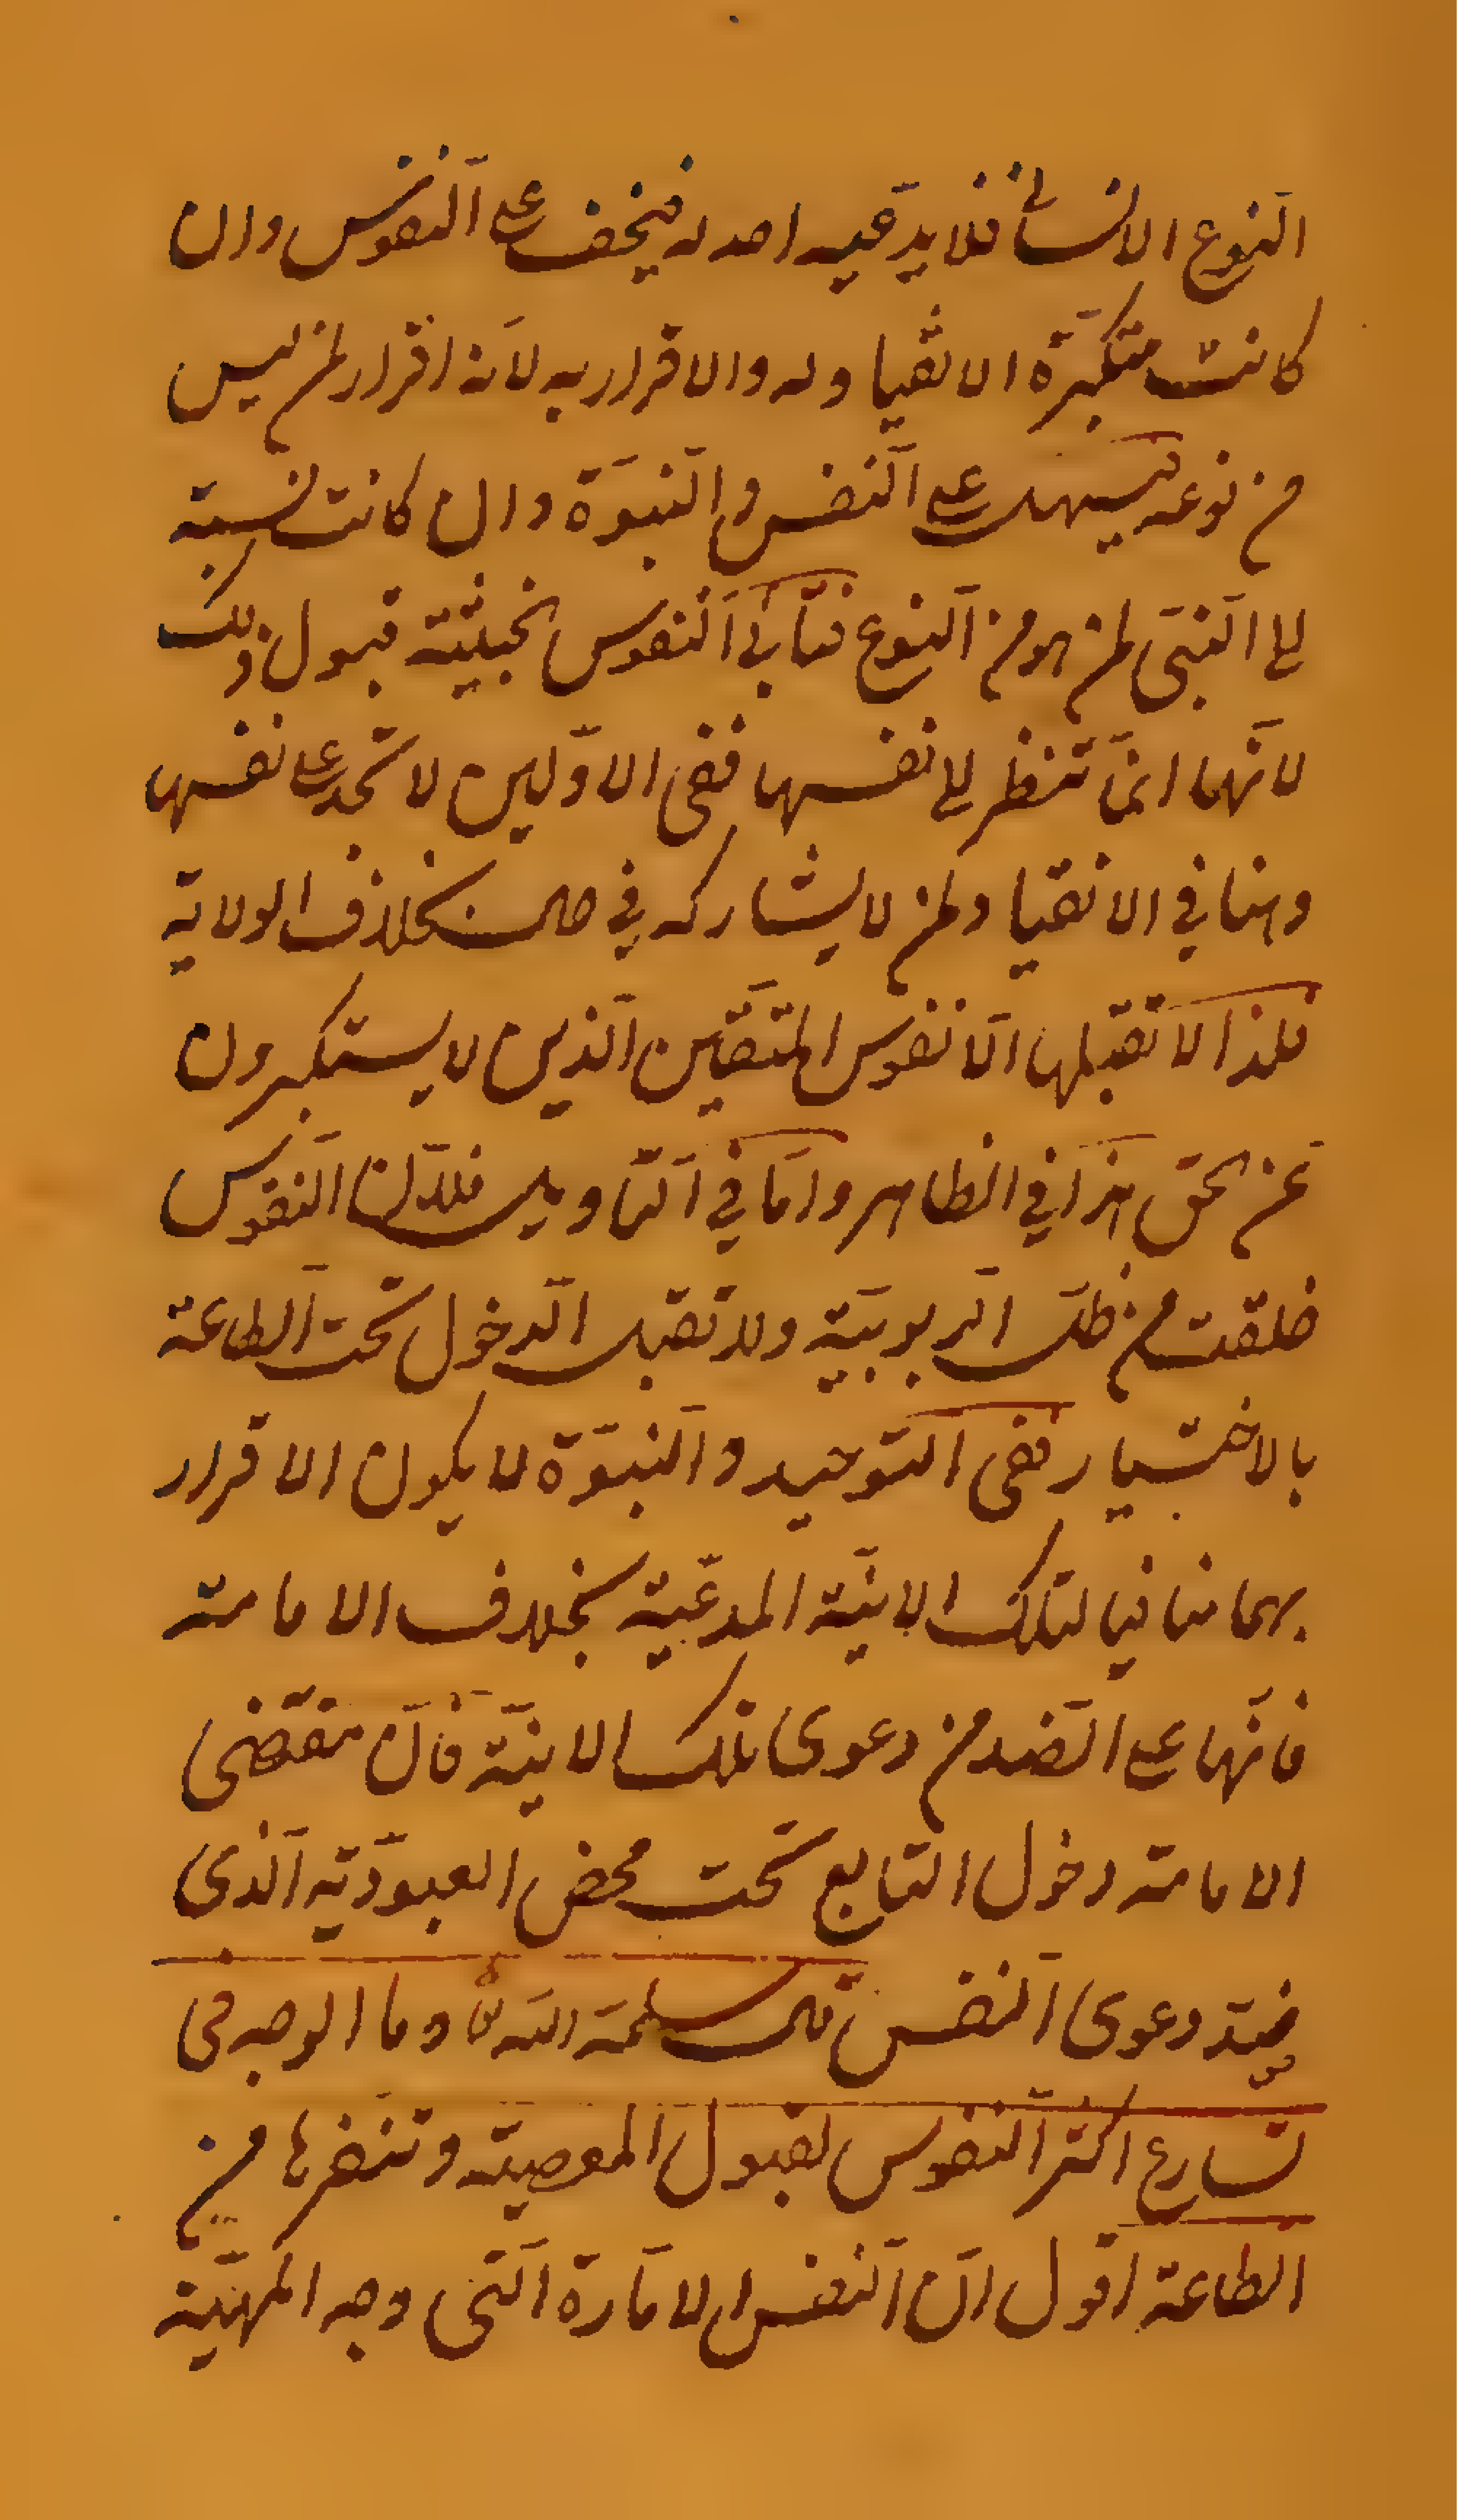 النوع الانساني فلا يدعيه احد له فيخف على النفوس وان
كانت متكبّرة الانقياد له والاقرار به لانّه اقرار لمن ليس
من نوعه فيسهل على النفس والنبوّة وان كانت نسبة
الى النبيّ لمن هو من النوع فتأبى النفوس الخبيثة قبول ذلك
لانّها انّما تنظر الى نفسها ففي الاوّلين لا تجد على نفسها
وهنا في الانقياد لمن لا يشاركه في حال بخلاف الولاية
فلذا لا تقبلها الّا نفوس المتّقين الّذين لا يستكبرون
عن الحق هذا في الظاهر وامّا في التّأويل فلانّ النّفوس
خلقت من ظلّ الرّبوبيّة ولا تقبل الدخول تحت الطاعة
بالاختيار ففي التّوحيد والنّبوّة لا يكون الاقرار
بهما منافيا لتلك الانيّة المدعية بخلاف الامامة
فانّها على الضّد من دعوى تلك الانيّة فانّ مقتضى
الامامة دخول التابع تحت محض العبوديّة الّذي
ضدّ دعوى النّفس قال سلمه الله تعالى وما الوجه في
تسارع اكثر النفوس لقبول المعصية وتنفرها من
الطاعة اقول انّ النّفس الامّارة الّتي وجه المهيّة